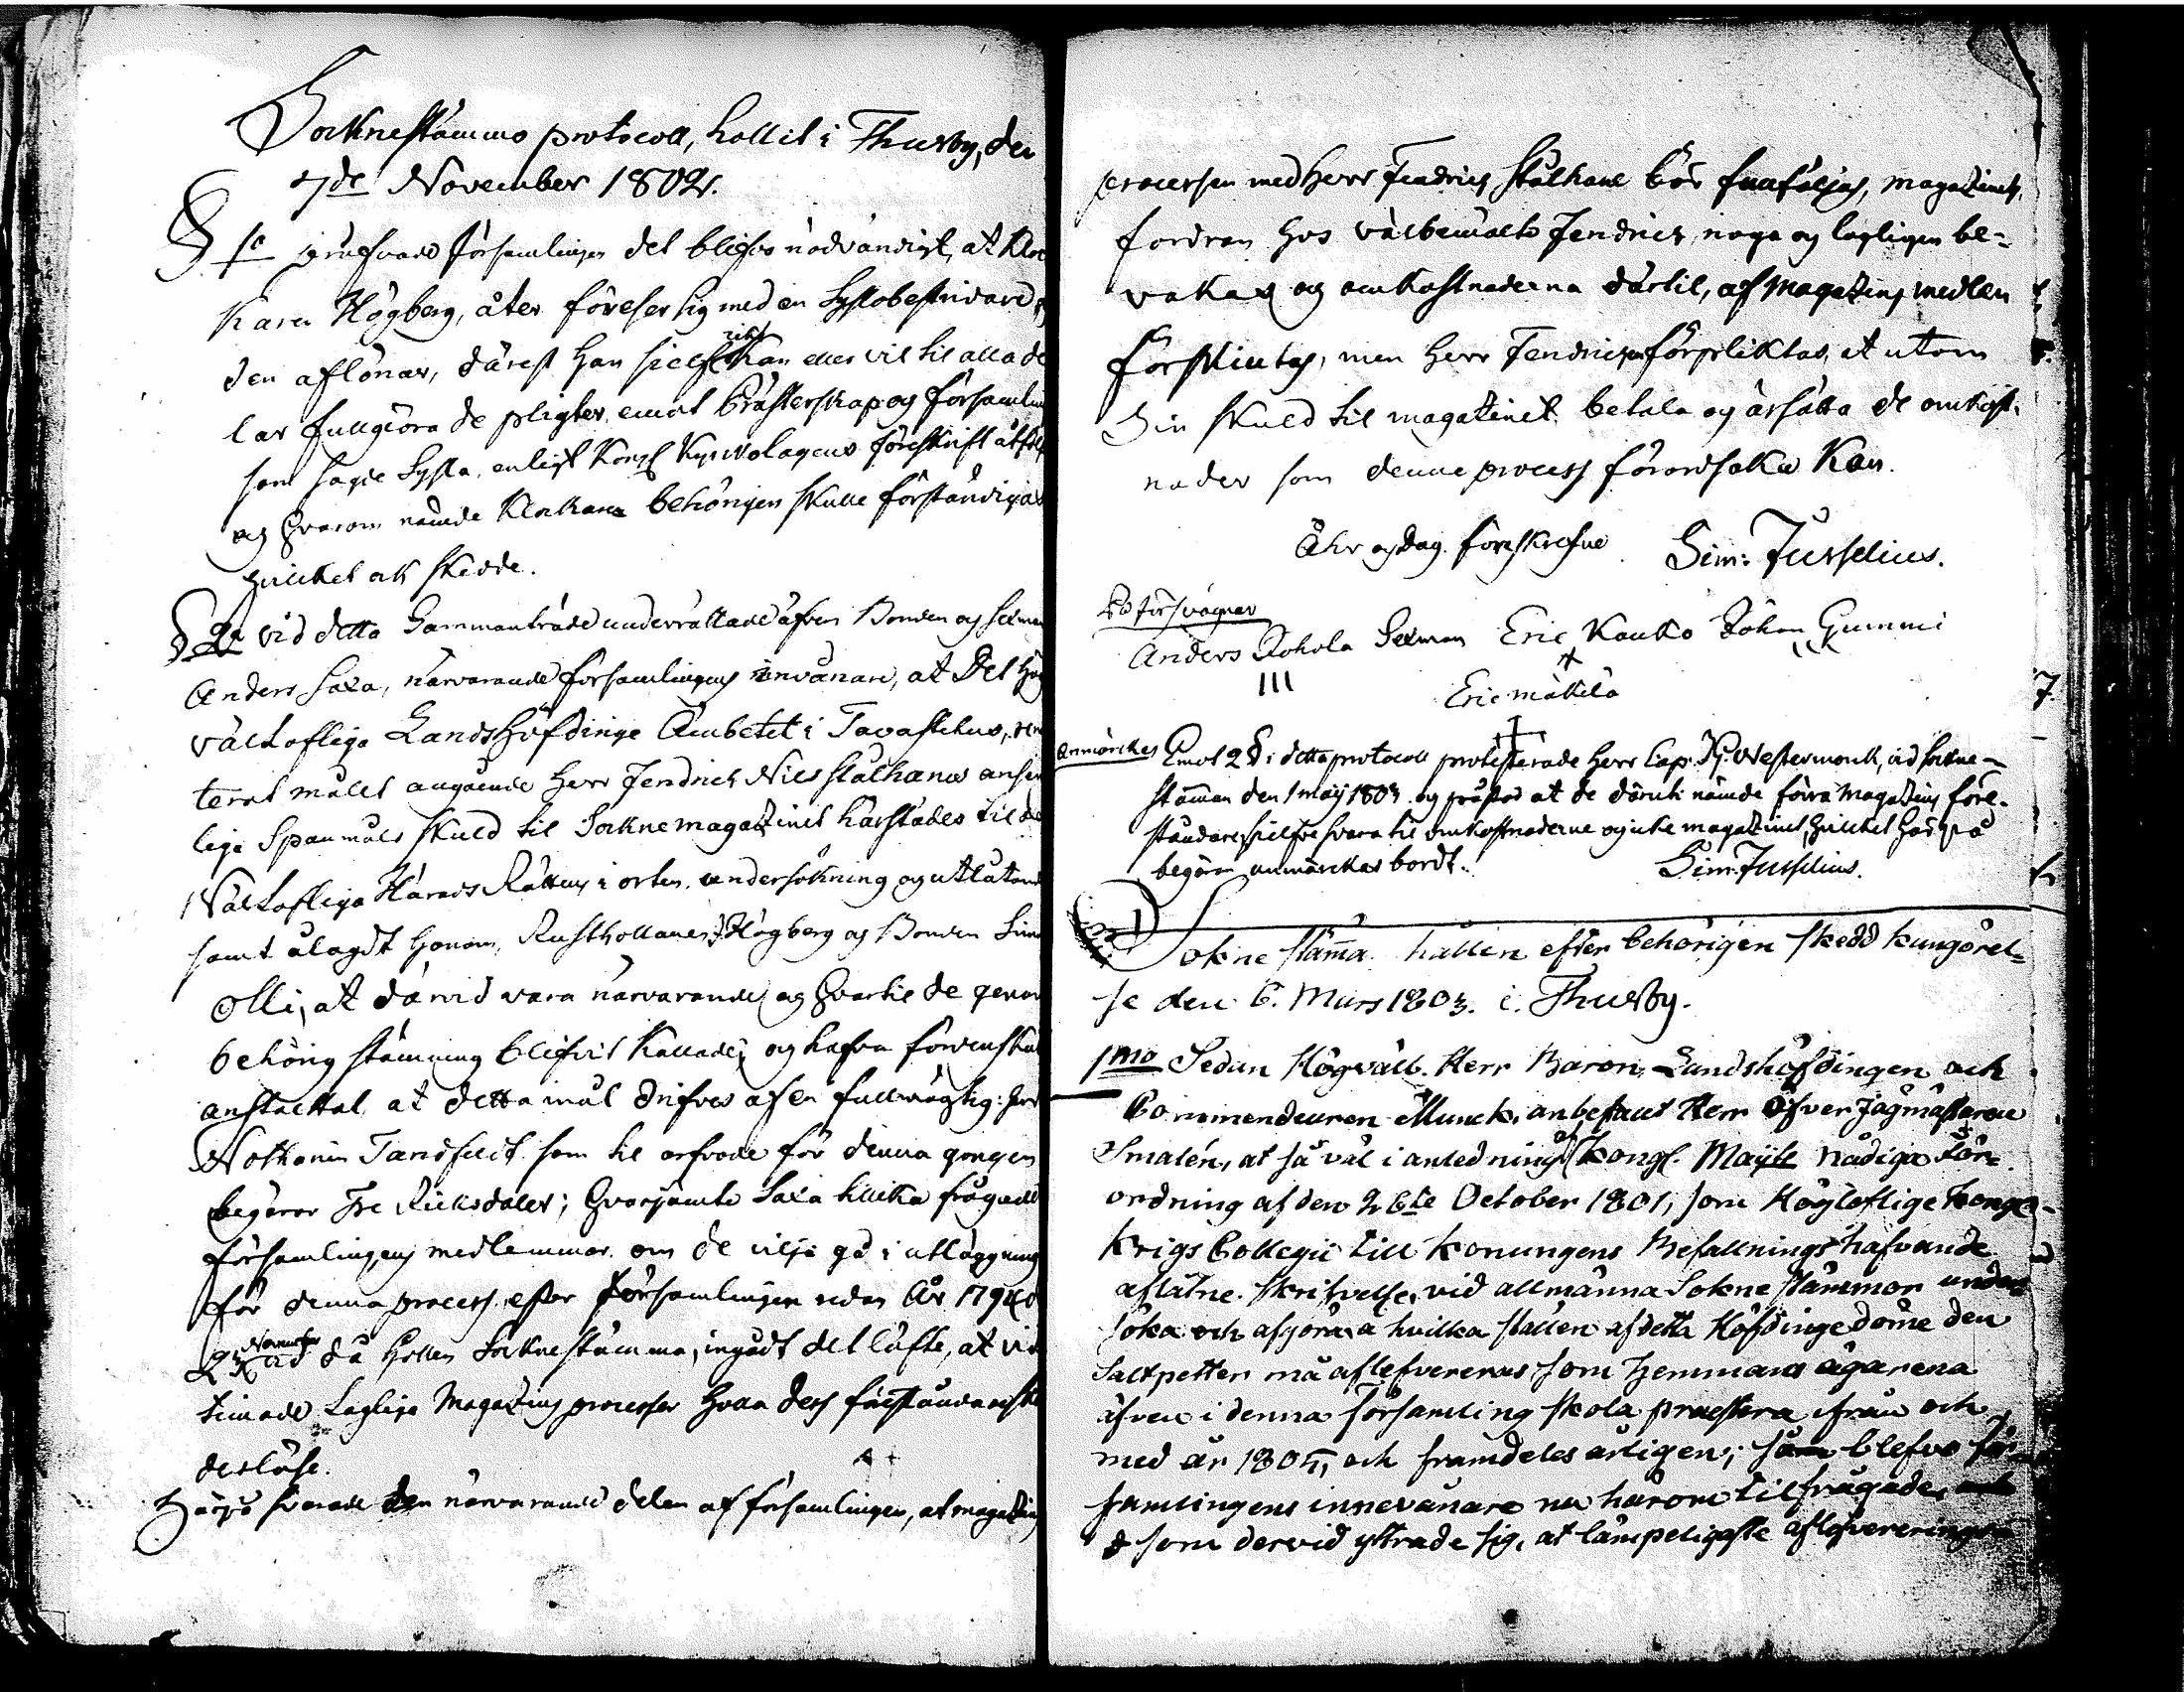 Socknestämmo protocoll, hollit i Thusby, den
7de November 1802.
§ 1o pröfvade Församlingen det blifva nödvändigt, at Kloc
karen Högberg, åter föreser sig med en Sysslobestridare,
den aflönar, därest han sielf icke kan eller vil til alla de
lar fullgiöra de pligter emot Prästerskap og Församlin
som hans Syssla, enligt Kongl Kyrckolagens föreskrift åtfölj
og hvarom nämde Klockare behörigen skulle förständigas
hvilket ock skedde.
§ 2o vid detta Sammanträde underrättade äfven Bonden og Sexman
Anders Saxa, närvarande församlingens invånare, at Det Hög
vällofliga Landshöfdinge Embetet i Tavastehus,
terat målet angående Herr Fendrick Nils Stålhanes ansen
lige Spanmåls skuld til Socknemagazinet härstädes til det
Vällofliga Härads Rättens i orten undersökning og utlåtande
samt ålagdt honom, Rusthollaren Högberg og Bonden Simon
Olli, at därvid vara närvarande og hvartil de genom
behörig stämning blifvit kallade, og hafva förenskul
anstaltat at detta mål drifves af en fullmägtig: Herr
Notharien Tandfelt som til arfvode för denna gongen
begärar Tre Riksdaler; hvarjämte Saxa tillika frågade
församlingens medlemmar om de vilja gå i utläggning
för denna process, efter församlingen redan År 1794 d
2 November vid då hollen Socknestämma, ingådt det löfte, at vid
timade Laglige Magazins processer holla dess föreståndare ska
deslöse.
Härpå svarade den närvarande delen af församlingen, at magazins
processen med Herr Fendrich Stålhane bör fullföljas, magazinets
fordran hos välbemälte Fendrick, noga og lagligen be-
vakas og omkostnaderna därtil, af Magazins medlen
förskiutas, men Herr Fendricken förpliktas, at utom
Sin skuld til magazinet, betala og ärsätta de omkost-
nader som denne process förordsaka kan.
Åhr og dag föreskrefne. Sim: Jusselius.
På församlingens vägnar
Anders Rohola Sexman Eric Kauko Johan Gummi
III
Eric Mäkilä
Anmärckes Emot 2 § i detta protocoll protesterade Herr Cap: Westermarck, vid Sockne-
stämman den 1 maij 1803 og påstod at de däruti nämde förra Magazins före-
ståndare, sielfve svara til omkostnaderne og icke magazinet, hvilket här på
begäran anmärckas bordt. Sim: Jusselius.
Sokne stämma hållen efter behörigen skedd kungörel-
se den 6. Mars 1803. i Thusby.
1mo Sedan Högväll. Herr Baron, Landshöfdingen och
Commendeuren Munck, anbefaldt Herr Öfver Jägmästaren
Smalén, at så väl i anledning af Kongl. Maijts nådiga För-
ordning af den 26te October 1801, som Högloflige Kongl.
Krigs Collegii till Konungens Befallningshafvande
aflåtne skrifvelse, vid allmänna Sokne stämmor under
söka och afgöra å hvilka ställen af detta Höfdinge döme den
Saltpetter må aflefvereras som Hemmans ägarena
äfven i denna församling skola præstera ifrån och
med år 1805, och framdeles årligen; så blefvo för-
samlingens innevånare nu härom tilfrågade,
som dervid yttrade sig, at lämpeligaste aflefvererings-